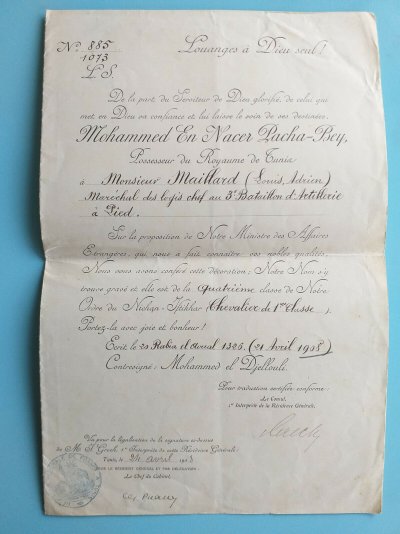 N° 885
1073
L. S.
Louanges à Dieu seul!
De la part du Serviteur de Dieu glorifié, de celui qui
met en Dieu sa confiance et lui laisse le soin de ses destinées.
Mohammed En Nacer Pacha-Bey,
Possesseur du Royaume de Tunis
à Monsieur Maillard (Louis, Adrien)
Maréchal des logis chef au 3e Bataillon d'Artillerie
à Pied.
Sur la proposition de Notre Ministre des Affaires
Etrangères qui nous a fait connaître vos nobles qualités,
Nous vous avons conféré cette décoration; Notre Nom s'y
trouve gravé et elle est de la quatrième classe de Notre
Ordre du Nichan-Iftikhar (Chevalier de 1ère Classe).
Portez-la avec joie et bonheur!
Ecrit le 20 Rabia el Aoual 1326 (21 Avril 1908)
Contresigné: Mohammed el Djellouli.
Pour traduction certifiée conforme:
Le Consul,
1er Interprète de la Résidence Générale.
Vu pour la légalisation de la signature ci-dessus
de M. Grech, 1er Interprète de cette Résidence Générale:
Tunis, le 24 avril 1908
POUR LE RÉSIDENT GÉNÉRAL ET PAR DÉLÉGATION:
Le Chef du Cabinet